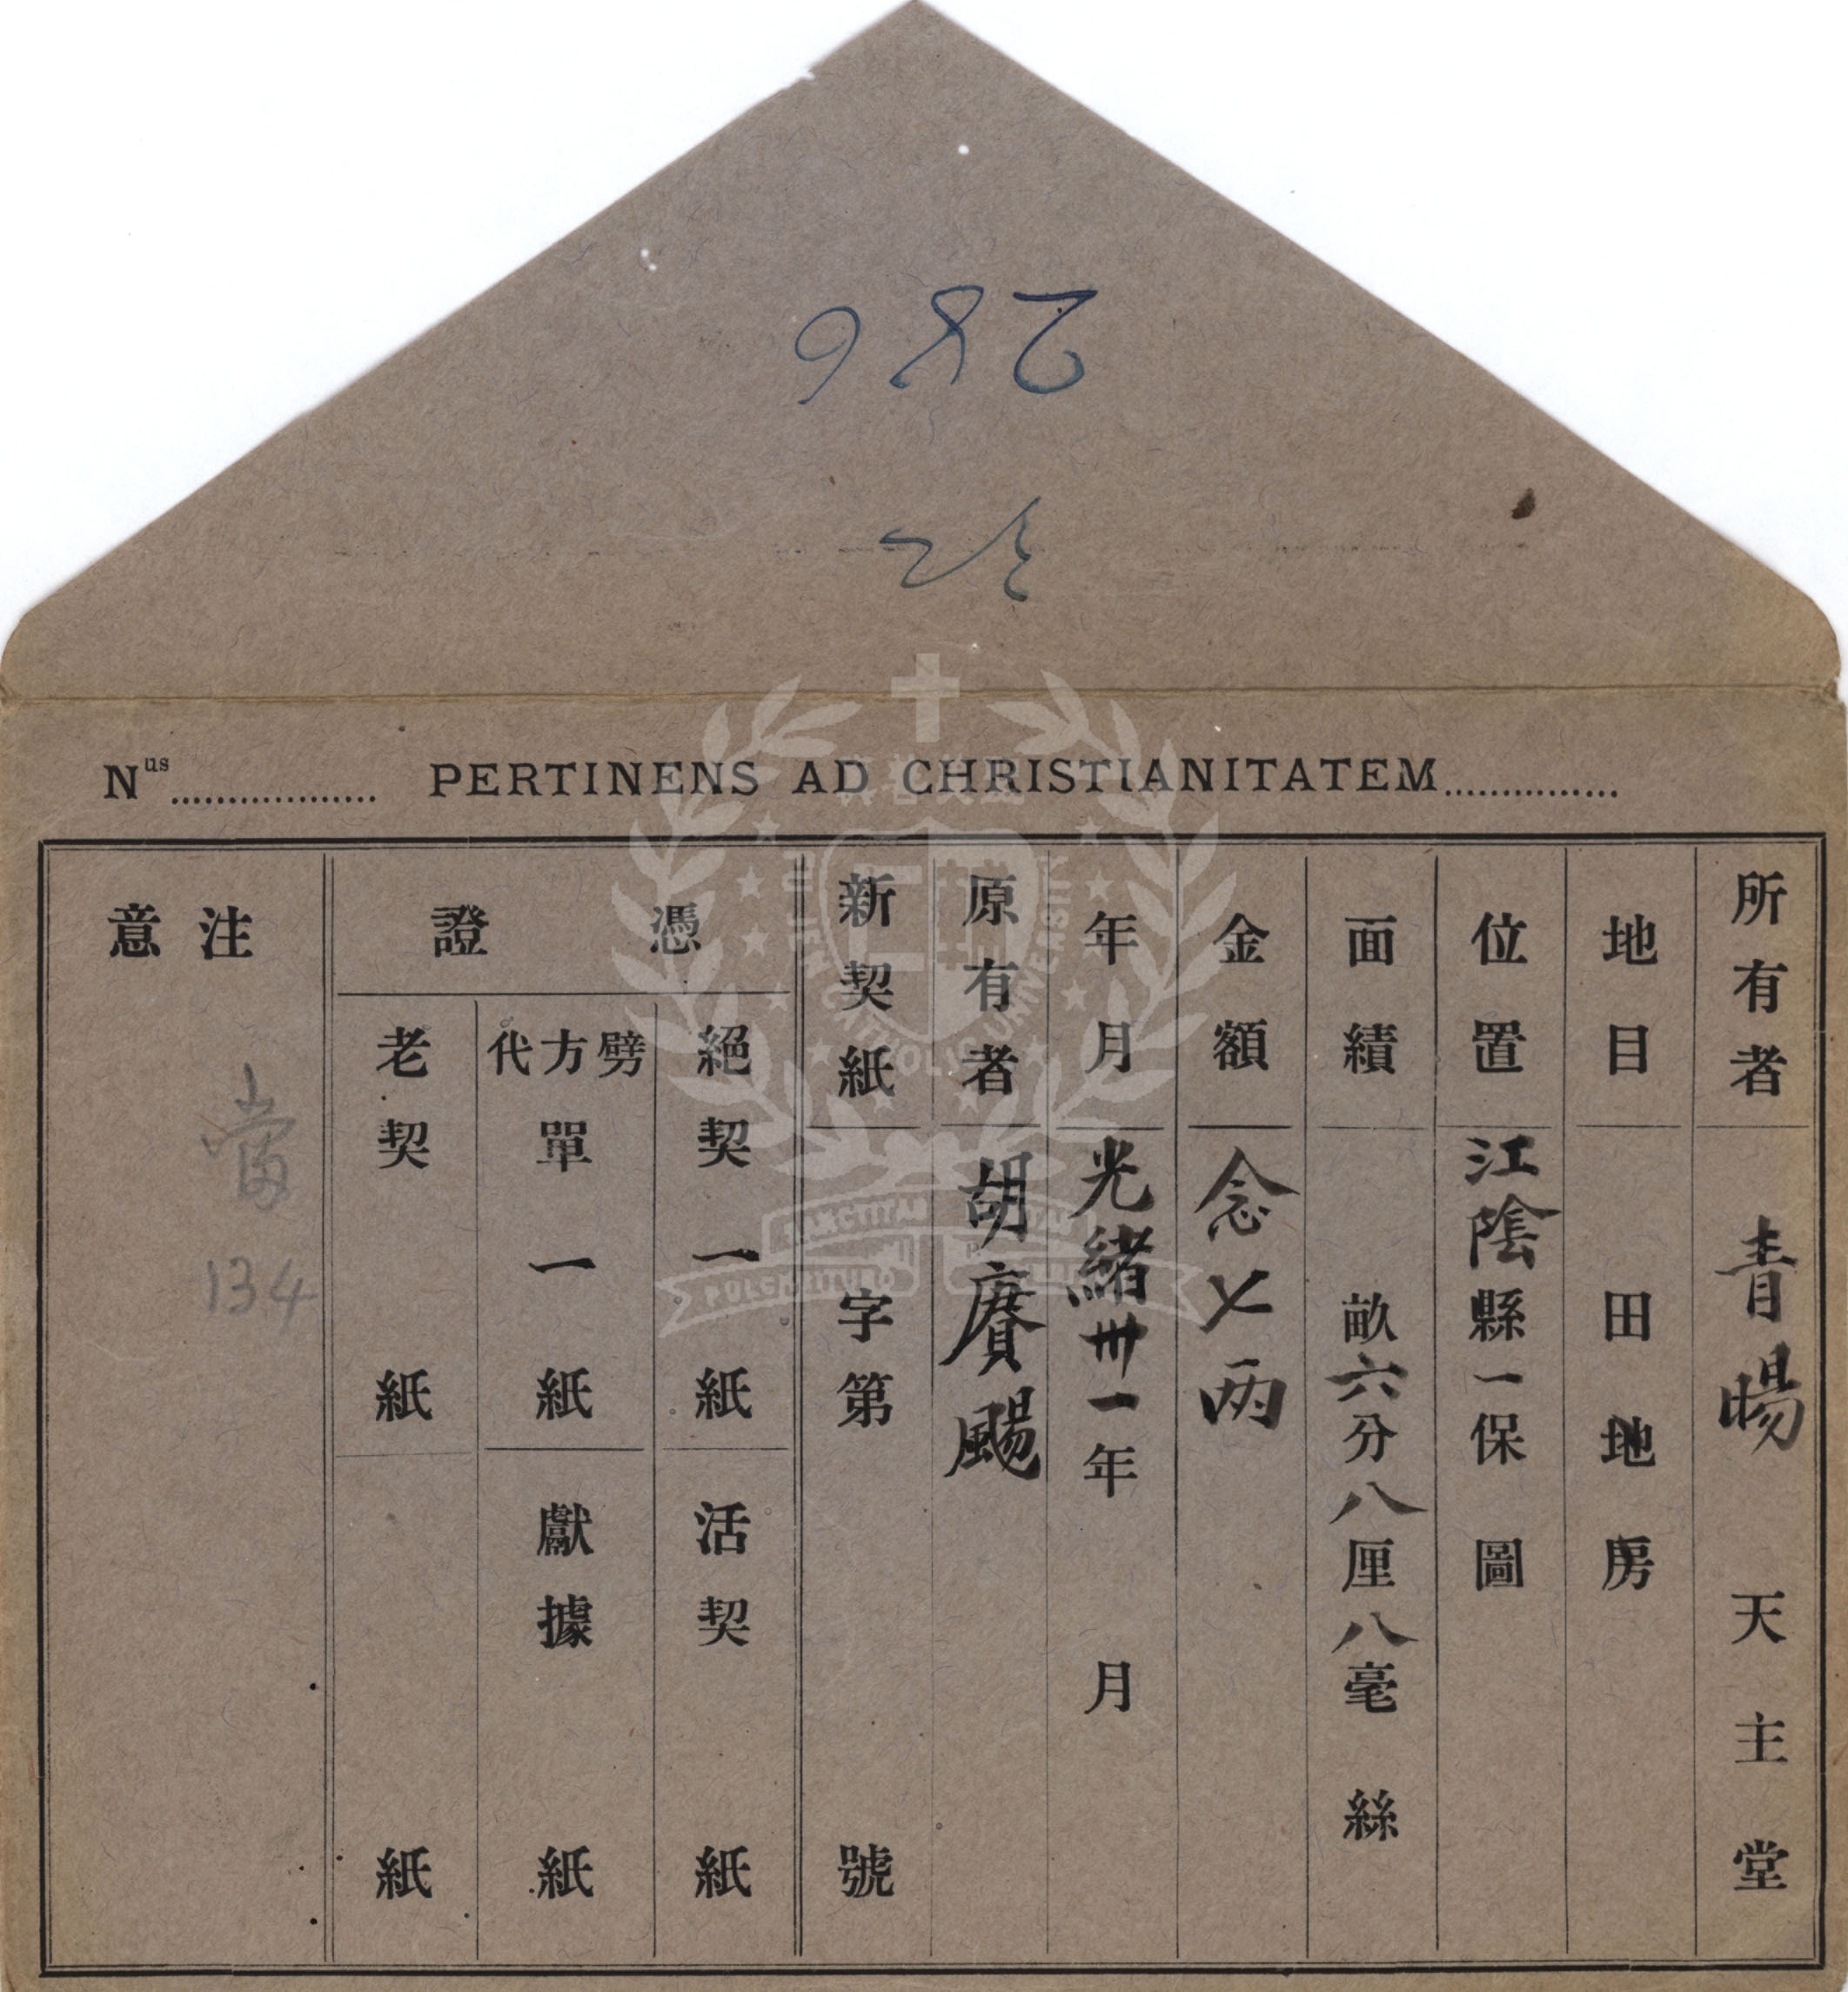 286
Nus.................. PERTINENS AD CHRISTIANITATEM...............
所有者 青暘 天主堂
地目 田地房
位置 江陰縣一保圖
面績 畝六分八厘八毫絲
金額 念七両
年月 光緒卅一年 月
原有者 胡賡颺
新契紙 字第 號
憑證
絕契一紙 活契 紙
劈方代單一紙 獻據 紙
老契 紙 紙
注意
當
134